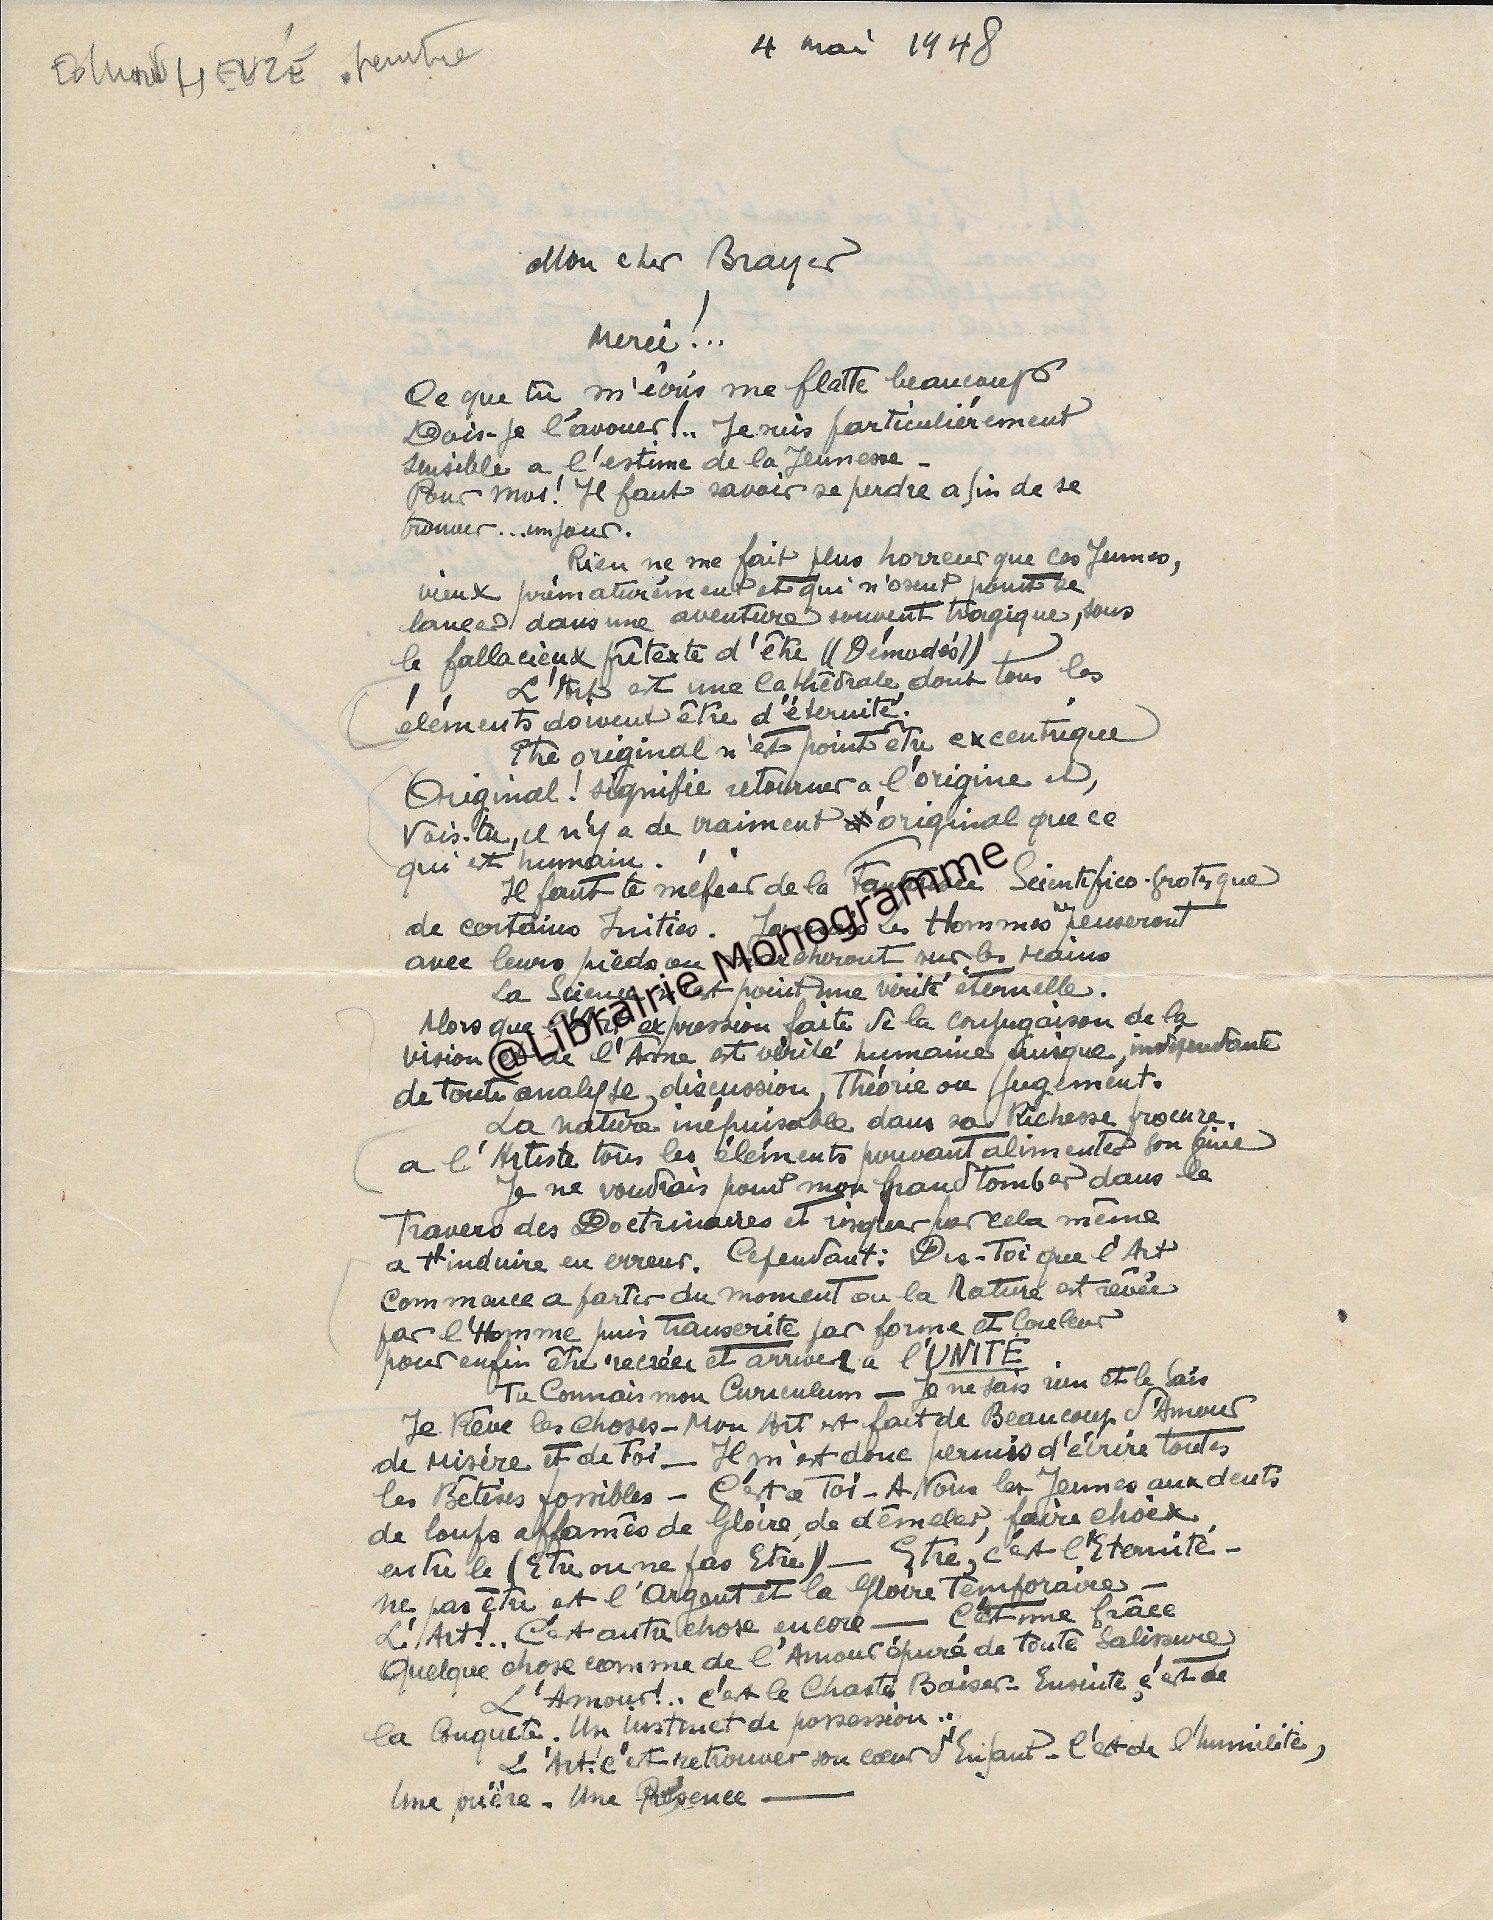 Edmond HEUZÉ peintre
4 mai 1948
Mon cher Brayer
Merci!...
Ce que tu m'écris me flatte beaucoup
Dois-je l'avouer!.. Je suis particulièrement
sensible a l'estime de la Jeunesse -
Pour Moi! Il faut savoir se perdre afin de se
trouver ... un jour.
Rien ne me fait plus horreur que ces Jeunes,
vieux prématurément et qui n'osent point se
lancer dans une aventure souvent tragique, sous
le fallacieux prêtexte d'être ((Démodés))
L'Art est une Cathédrale dont tous les
éléments doivent être d'éternité.
Etre original n'est point être excentrique
Original! signifie retourner a l'origine et,
Vois-tu, il n'y a de vraiment d'original que ce
qui est humain.
Il faut te méfier de la Fantaisie Scientifico-Grotesque
de certains Initiés. Jamais les Hommes ne penseront
avec leurs pieds ou marcheront sur les mains
La Science n'est point une vérité éternelle.
Alors que l'Art expression faite de la conjugaison de la
vision et de l'Ame est vérité humaine puisque, indépendante
de toute analyse, discussion, Théorie ou jugement.
La nature inépuisable dans sa Richesse procure
a l'Artiste tous les éléments pouvant alimenter son Génie
Je ne voudrais point mon Grand tomber dans le
Travers des Doctrinaires et risquer par cela même
a t'induire en erreur. Cependant: Dis-Toi que l'Art
Commence a partir du moment ou la Nature est rêvée
par l'Homme puis transcrite par forme et Couleur
pour enfin être recréée et arriver a l'UNITÉ
Tu Connais mon Curiculum - Je ne sais rien et le Sais
Je Rêve les choses - Mon Art est fait de Beaucoup d'Amour
de Misère et de Foi - Il m'est donc permis d'écrire toutes
les Bêtises possibles - C'est a Toi - A Vous les Jeunes aux dents
de loups affamés de Gloire, de démeler, faire choix
entre le (Etre ou ne pas Etre)) - Etre, c'est l'Eternité -
ne pas être est l'Argent et la Gloire Temporaire -
L'Art!.. C'est autre chose encore - C'est une Grâce
Quelque chose comme de l'Amour épuré de toute Salissure
L'Amour!.. c'est le Chaste Baiser - Ensuite, c'est de
la Conquête. Un instinct de possession..
L'Art! c'est retrouver son cœur d'Enfant - C'est de l'humilité,
Une prière - Une Présence -
@Librairie Monogramme